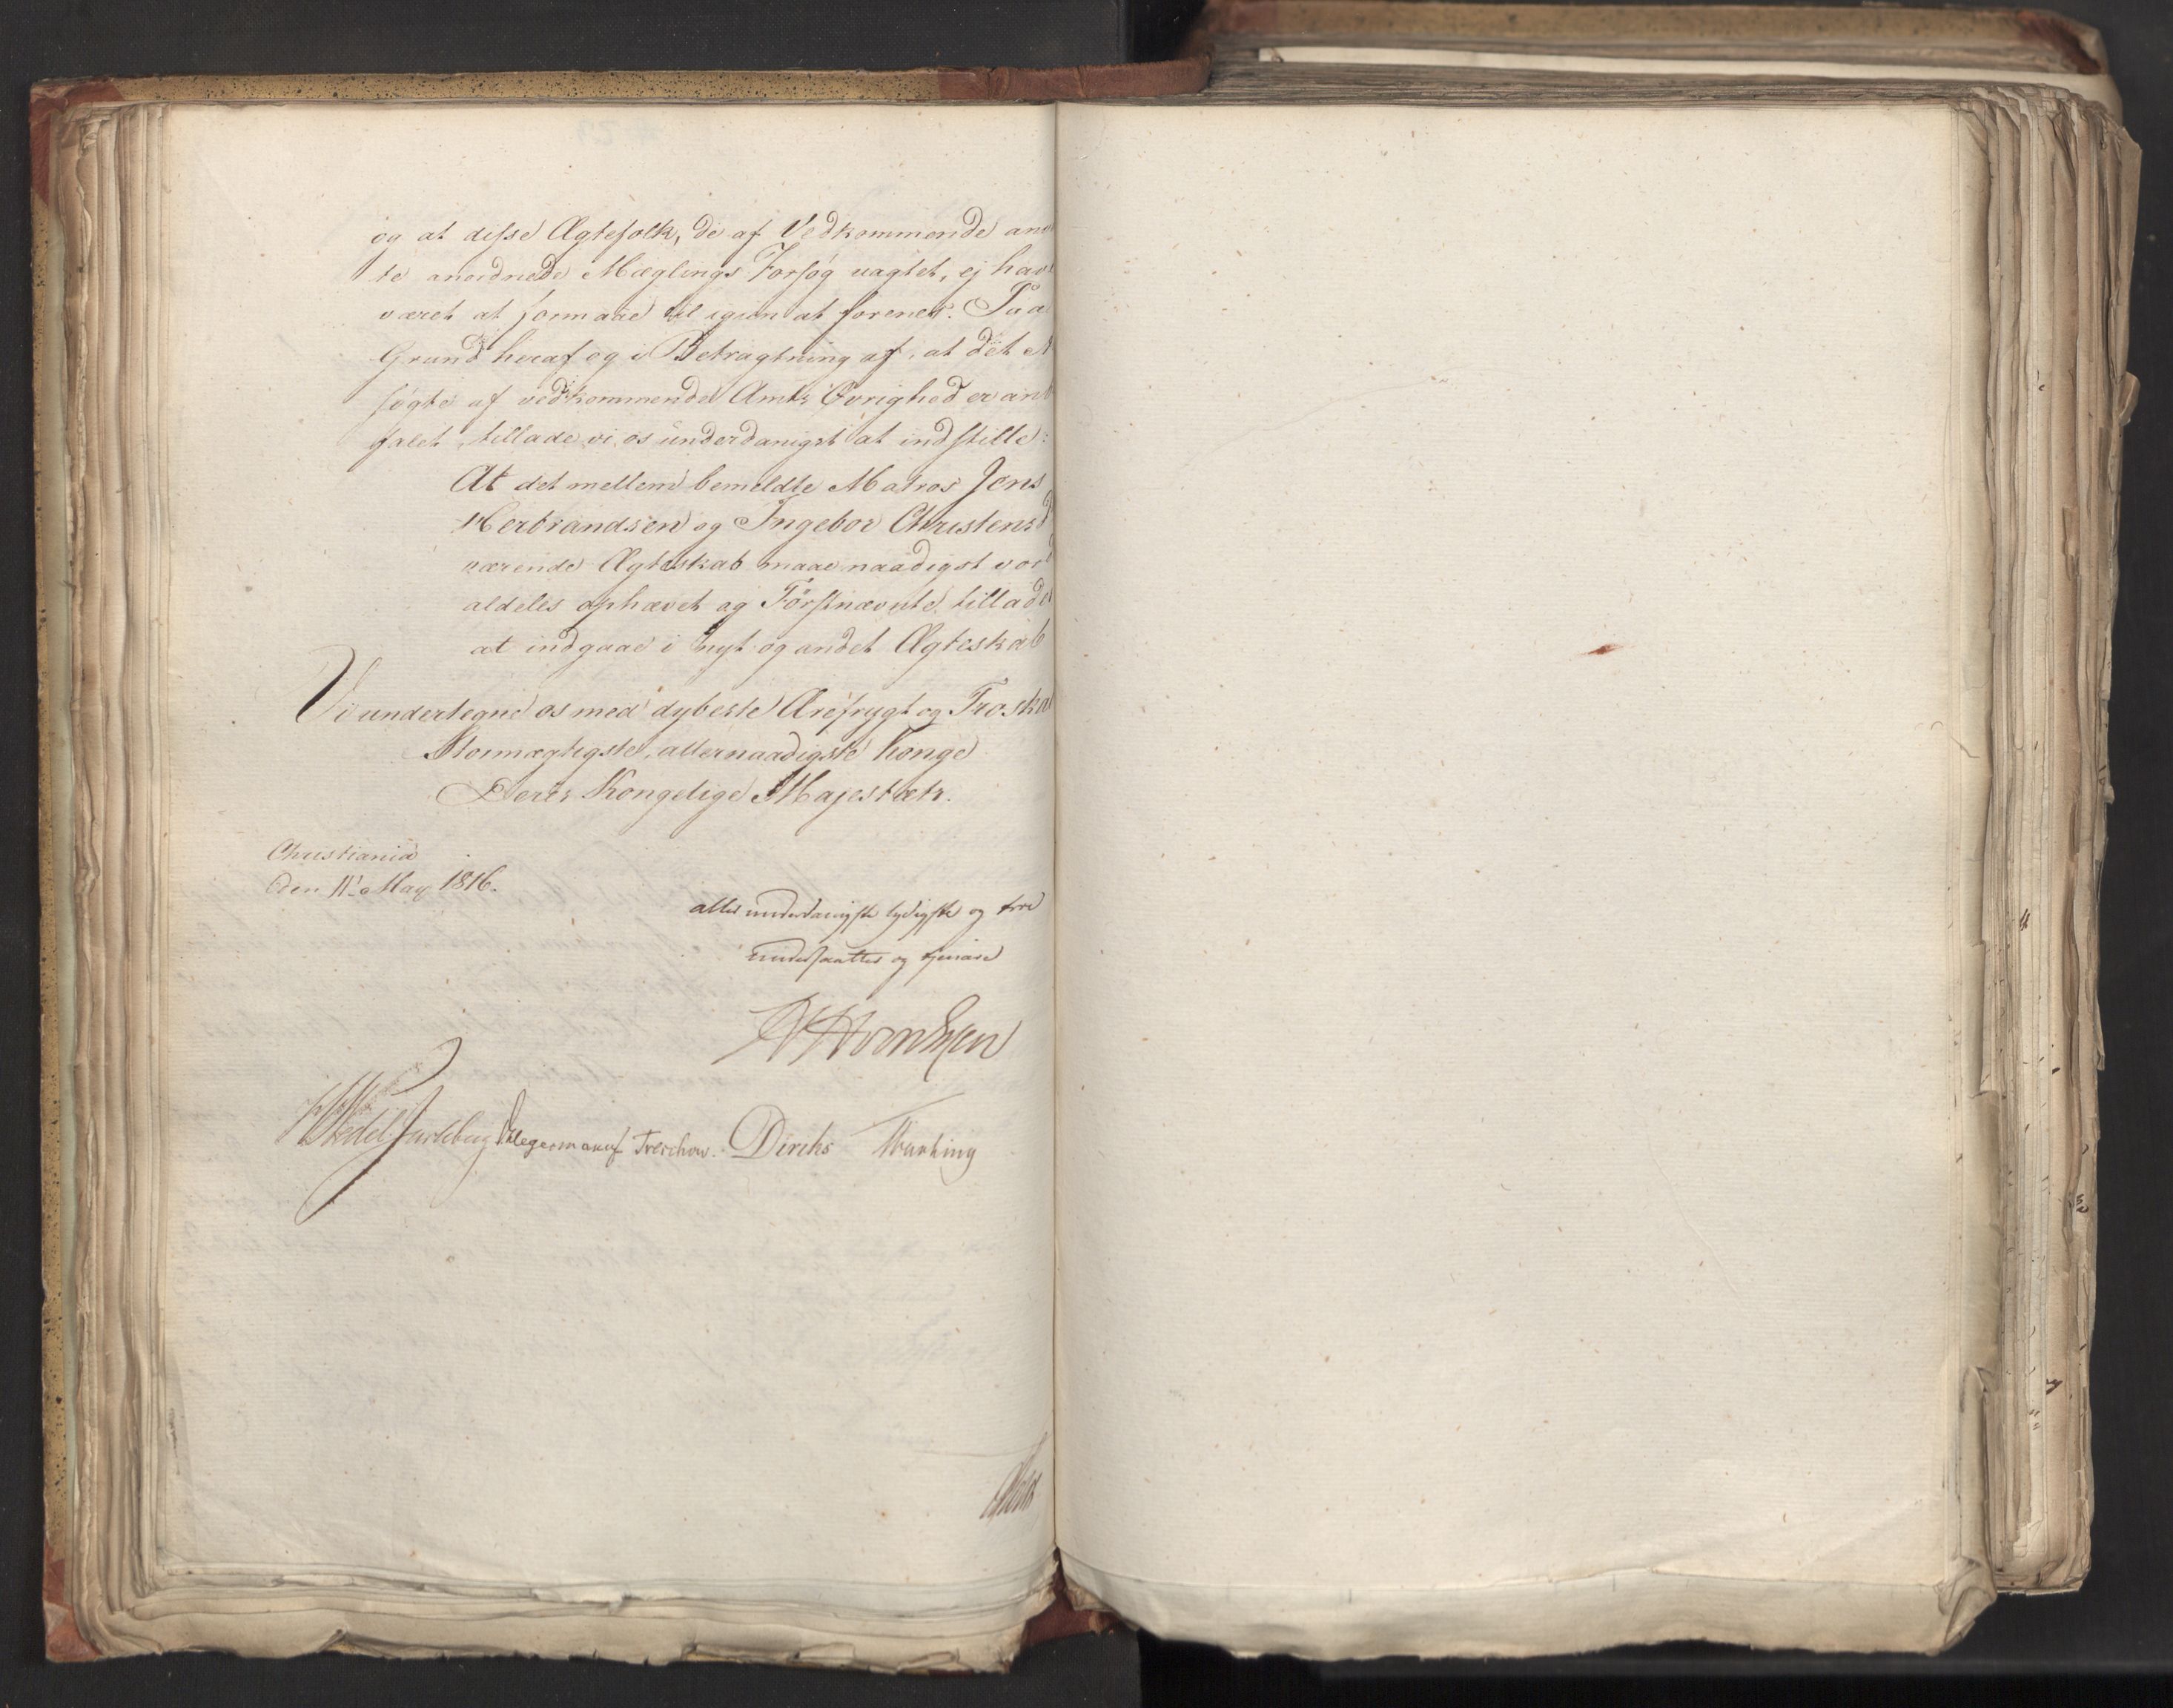 og at disse Ægtefolk, de af Vedkommende an
te anordnede Mæglings Forsøg uagtet, ej hav
været at formaae til igien at forenes. Paa
Grund heraf og i Betragtning af, at det
søgte af vedkommende Amts Øvrighed er an
falet, tillade vi os underdanigst at indstille:
At det mellem bemeldte Matros Jens
Herbrandsen og Ingebor Christens
værende Ægteskab maae naadigst vor
aldeles ophævet og Førstnævnte tillade
at indgaae i nyt og andet Ægteskab
Vi undertegne os med dybeste Ærefrygt og Troska
Stormægtigste, allernaadigste Konge
Deres Kongelige Majestæts.
Christiania
den 11' May 1816.
allerunderdanigste lydigste og troe
undersaatter og tjenere
Wedel Jarlsberg Hegermann Treschow. Diriks